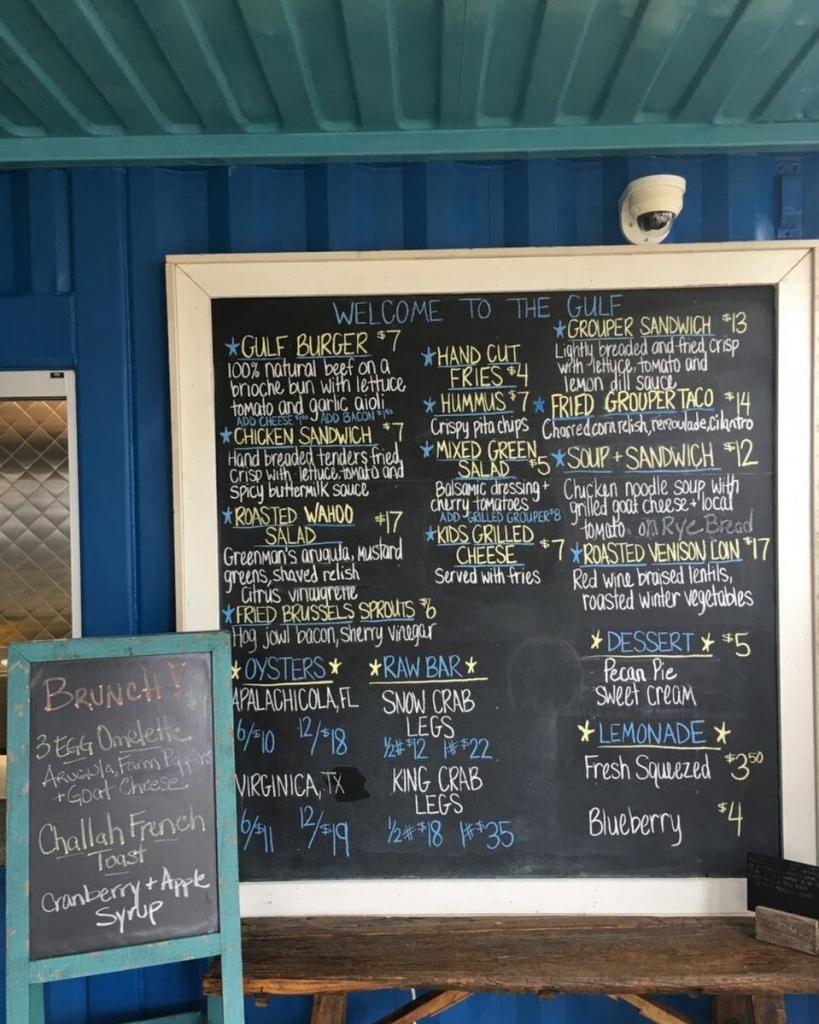 WELCOME TO THE GULF
GULF BURGER $7
100% natural beef on a
brioche bun with lettuce
tomato and garlic aioli
ADD CHEESE ADD BACON
CHICKEN SANDWICH $7
Hand breaded tenders fried
crisp with lettuce, tomato and
spicy buttermilk sauce
ROASTED WAHOO $17
SALAD
Greenman's arugula, mustard
greens, shaved relish
Citrus vinaigrette
FRIED BRUSSELS SPROUTS $6
Hog jowl bacon, sherry vinegar
HAND CUT
FRIES $4
HUMMUS $7
Crispy pita chips
MIXED GREEN
SALAD $5
Balsamic dressing +
cherry tomatoes
ADD GRILLED GROUPER $8
KIDS GRILLED
CHEESE $7
Served with fries
GROUPER SANDWICH $13
Lightly breaded and fried crisp
with lettuce, tomato and
lemon dill sauce
FRIED GROUPER TACO $14
Charred corn relish, remoulade, cilantro
SOUP + SANDWICH $12
Chicken noodle soup with
grilled goat cheese + local
tomato on Rye Bread
ROASTED VENISON LOIN $17
Red wine braised lentils,
roasted winter vegetables
OYSTERS
APALACHICOLA, FL
6/$10 12/$18
VIRGINICA, TX
6/$11 12/$19
RAW BAR
SNOW CRAB
LEGS
½# $12 1# $22
KING CRAB
LEGS
½# $18 1# $35
DESSERT $5
Pecan Pie
Sweet cream
LEMONADE
Fresh Squeezed $3.50
Blueberry $4
BRUNCH! $9
3 EGG Omelette
Arugula, Farm
+ Goat Cheese
Challah French
Toast
Cranberry + Apple
Syrup